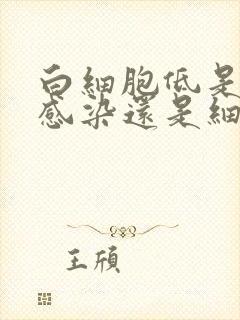 白細胞低是
感染還是細
王頎